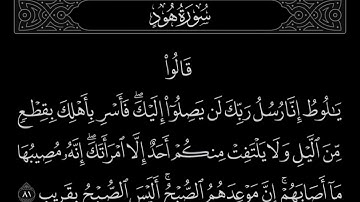 سُورَةُ هُودٍ
قَالُوا۟
يَـٰلُوطُ إِنَّا رُسُلُ رَبِّكَ لَن يَصِلُوٓا۟ إِلَيْكَ ۖ فَأَسْرِ بِأَهْلِكَ بِقِطْعٍ
مِّنَ ٱلَّيْلِ وَلَا يَلْتَفِتْ مِنكُمْ أَحَدٌ إِلَّا ٱمْرَأَتَكَ ۖ إِنَّهُۥ مُصِيبُهَا
مَآ أَصَابَهُمْ ۚ إِنَّ مَوْعِدَهُمُ ٱلصُّبْحُ ۚ أَلَيْسَ ٱلصُّبْحُ بِقَرِيبٍ ٨١